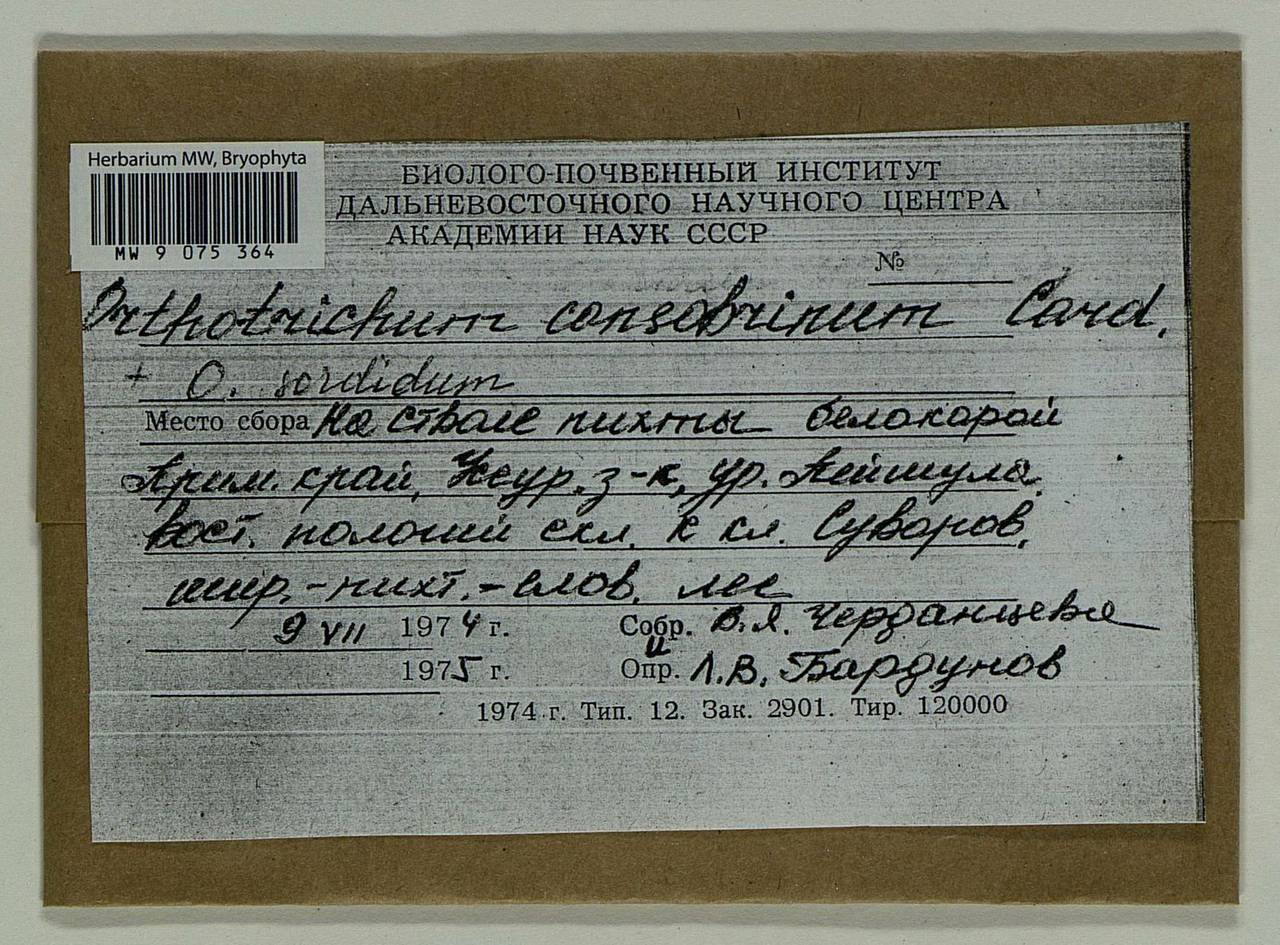 Herbarium MW, Bryophyta
MW 9 075 364
БИОЛОГО-ПОЧВЕННЫЙ ИНСТИТУТ
ДАЛЬНЕВОСТОЧНОГО НАУЧНОГО ЦЕНТРА
АКАДЕМИИ НАУК СССР
№
Orthotrichum consobrinum Card.
+ O. sordidum
Место сбора На стволе пихты белокорой
Прим. край, Уссур. з-к, ур. Пейшула
вост. пологий скл. к кл. Суворов.
шир.-пихт.-елов. лес
9 VII 1974 г. Собр. В.Я. Черданцева
и
1975 г. Опр. Л.В. Бардунов
1974 г. Тип. 12. Зак. 2901. Тир. 120000